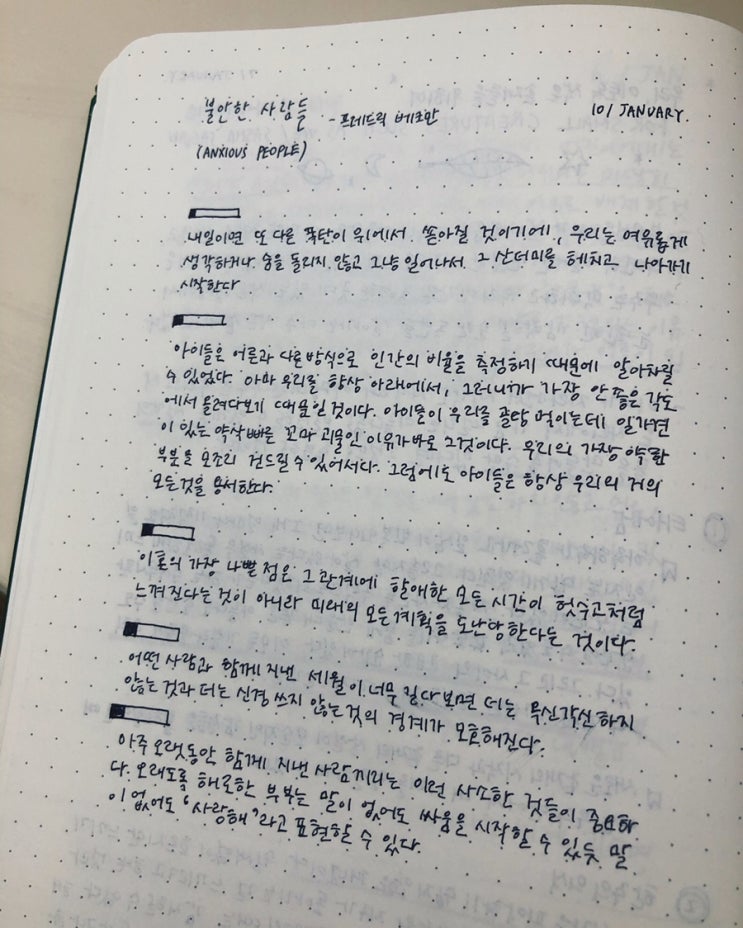 불안한 사람들 - 프레드릭 베크만
10/ JANUARY.
(ANXIOUS PEOPLE)
내일이면 또 다른 폭탄이 위에서 쏟아질 것이기에, 우리는 여유롭게
생각하거나 숨을 돌리지 않고 그냥 일어나서 그 산더미를 헤치고 나아가기
시작한다
아이들은 어른과 다른 방식으로 인간의 비율을 측정하기 때문에 알아차릴
수 있었다. 아마 우리를 항상 아래에서, 그러니까 가장 안 좋은 각도
에서 올려다보기 때문일 것이다. 아이들이 우리를 골탕 먹이는데 일가견
이 있는 약삭빠른 꼬마 괴물인 이유가 바로 그것이다. 우리의 가장 약한
부분을 모조리 건드릴 수 있어서다. 그럼에도 아이들은 항상 우리의 거의
모든 것을 용서한다.
이혼의 가장 나쁜 점은 그 관계에 할애한 모든 시간이 헛수고처럼
느껴진다는 것이 아니라 미래의 모든 계획을 도난당한다는 것이다.
어떤 사람과 함께 지낸 세월이 너무 길다보면 더는 무신경 하지
않는 것과 더는 신경 쓰지 않는 것의 경계가 모호해진다.
아주 오랫동안 함께 지낸 사람끼리는 이런 사소한 것들이 중요하
다. 오래도록 해로한 부부는 말이 없어도 싸움을 시작할 수 있듯 말
이 없어도 '사랑해'라고 표현할 수 있다.